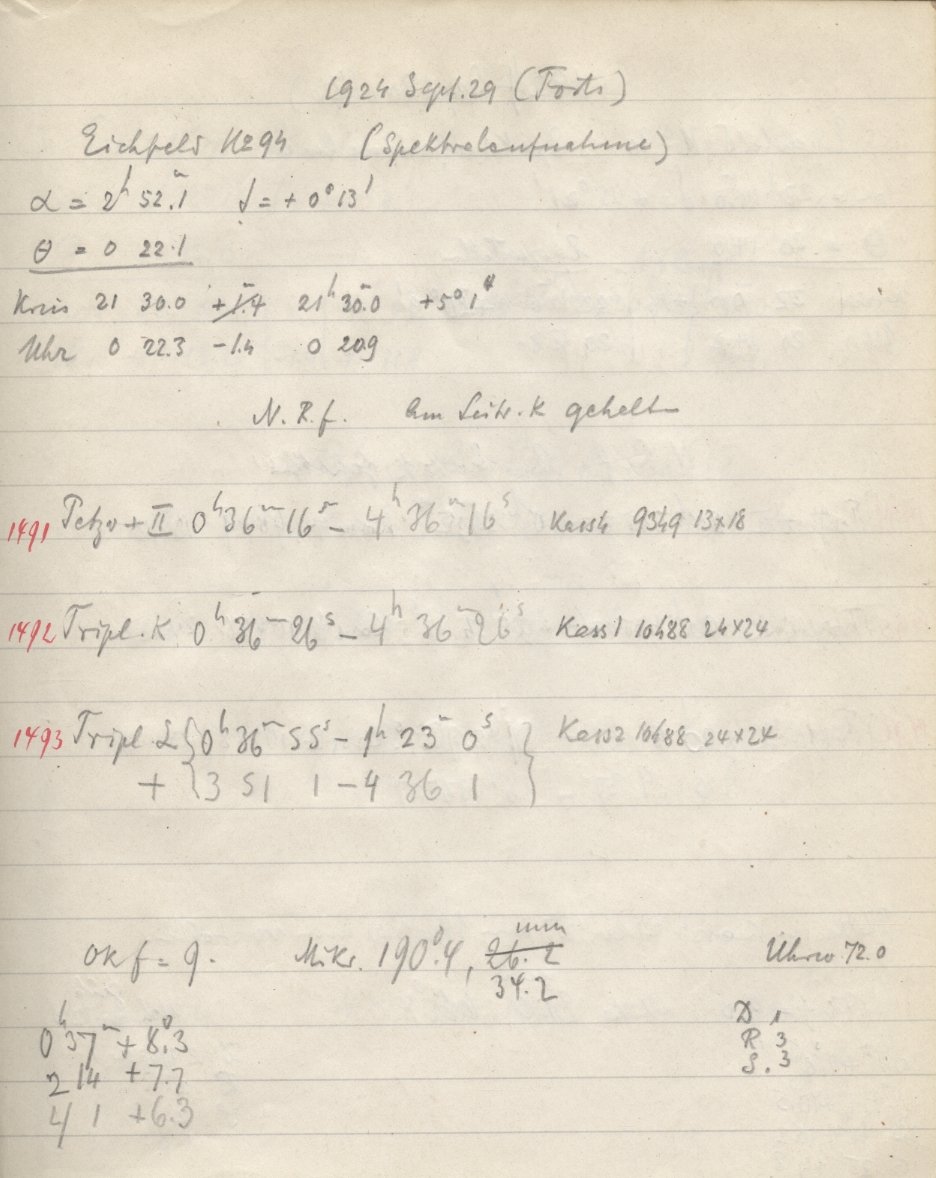 1924 Sept. 29 (Forts)
Eichfeld No 94 (Spektralaufnahme)
α = 2h 52m.1 δ = + 0° 13'
θ = 0 22.1
Kreis 21 30.0 +1.4 21h 30m.0 +5° 1'
Uhr 0 22.3 -1.4 0 20.9
N.R.f. Am Leitr. K gehalten
1491 Petzv + II 0h 36m 16s - 4h 36m 16s Kass 4 9349 13x18
1492 Tripl. K 0h 36m 26s - 4h 36m 26s Kass 1 10488 24x24
1493 Tripl L {0h 36m 55s - 1h 23m 0s} Kass 2 10488 24x24
+ {3 51 1 - 4 36 1}
Ok f = 9. Mikr. 190°.4, 26.2 mm Uhrw 72.0
34.2
D 1
0h 37m + 8°.3 R 3
2 14 + 7.7 S. 3
4 1 + 6.3